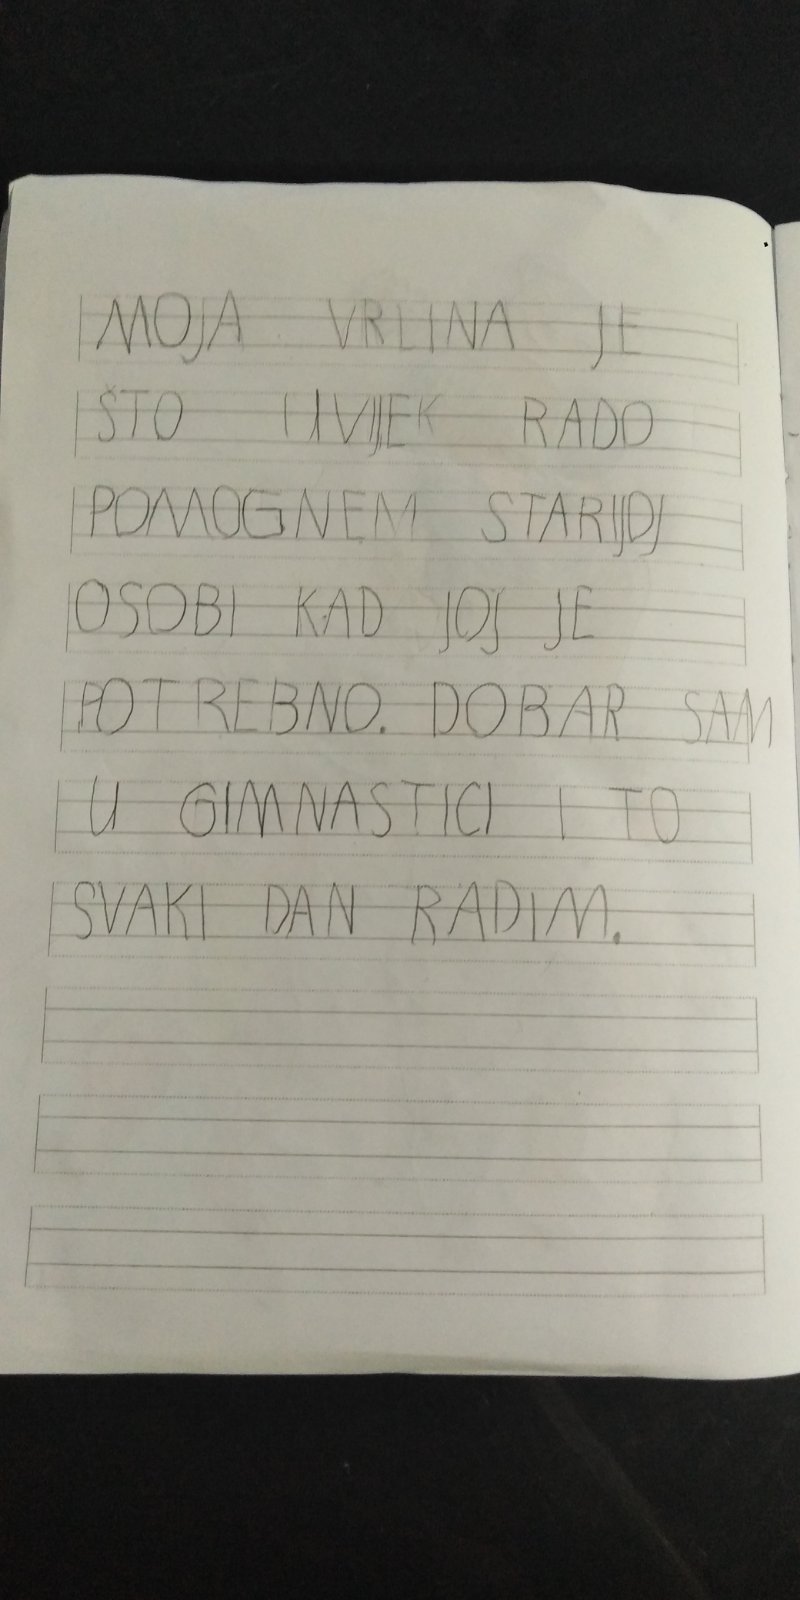 MOJA VRLINA JE
ŠTO UVIJEK RADO
POMOGNEM STARIJOJ
OSOBI KAD JOJ JE
POTREBNO. DOBAR SAM
U GIMNASTICI I TO
SVAKI DAN RADIM.